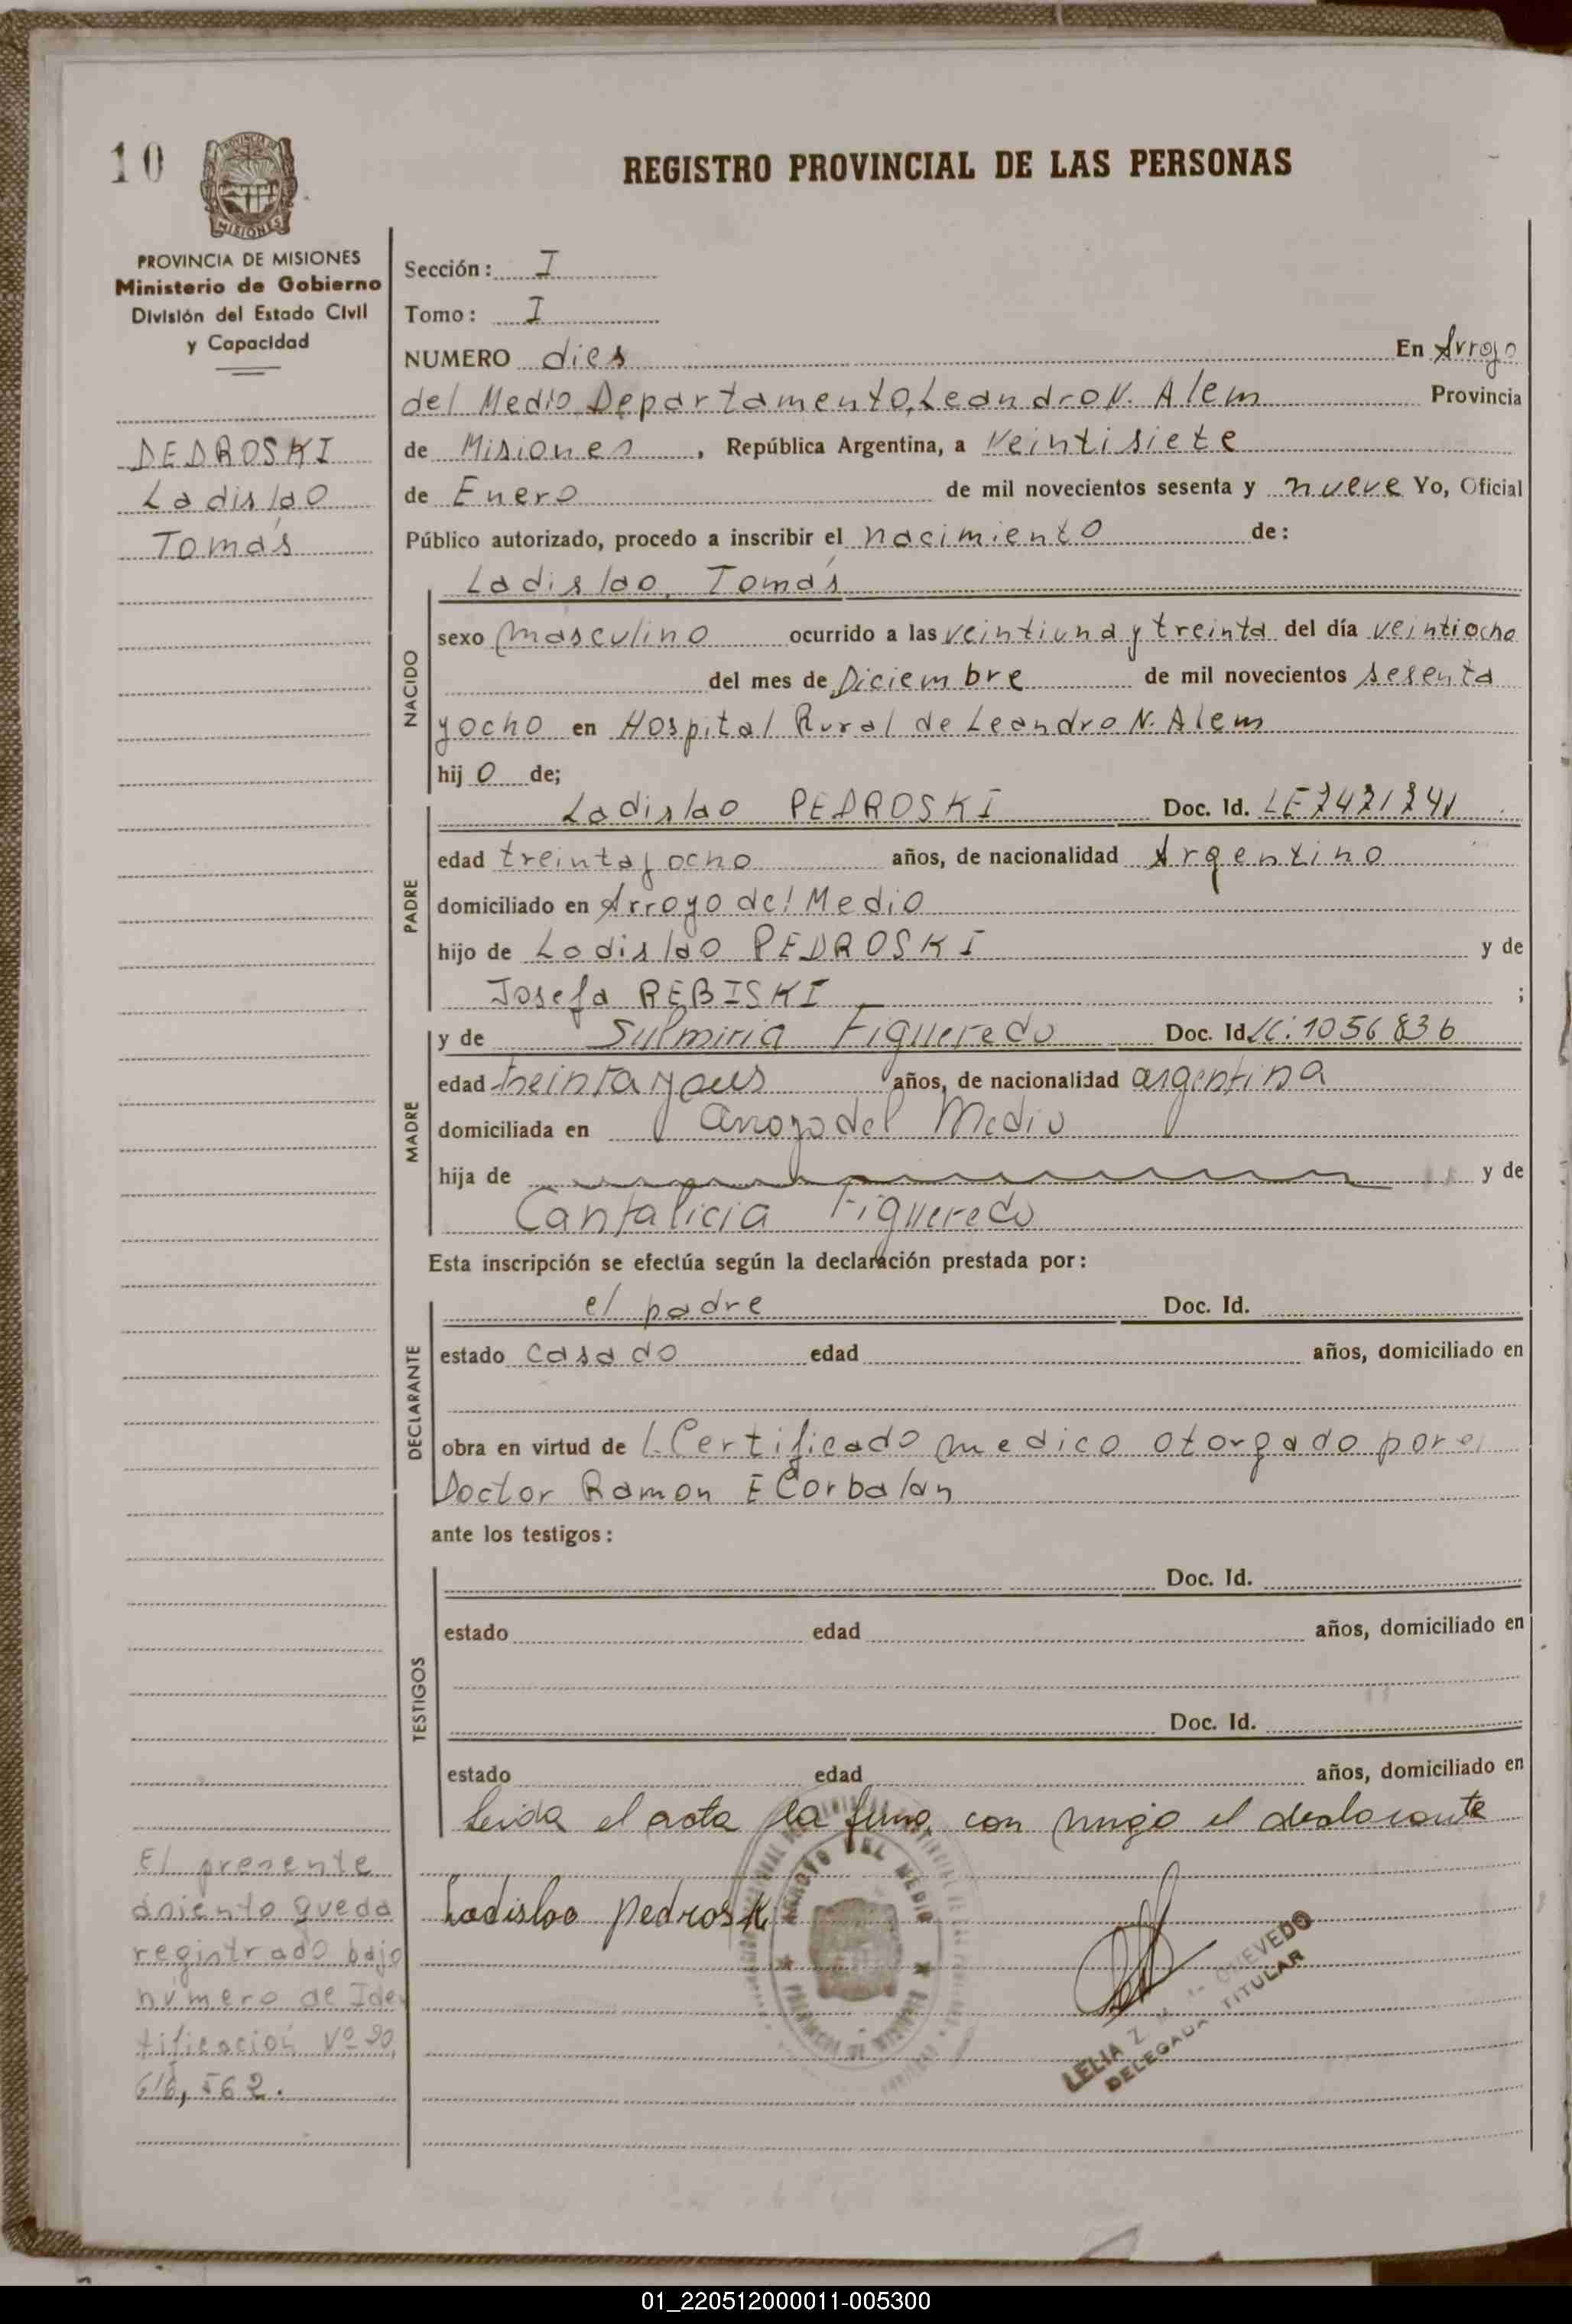 10
PROVINCIA DE
MISIONES
REGISTRO PROVINCIAL DE LAS PERSONAS
PROVINCIA DE MISIONES
Ministerio de Gobierno
División del Estado Civil
y Capacidad
DEDROSKI
Ladislao
Tomás
Sección: I
Tomo: I
NUMERO dies En Arroyo
del Medio Departamento, Leandro N. Alem Provincia
de Misiones, República Argentina, a Veintisiete
de Enero de mil novecientos sesenta y nueve Yo, Oficial
Público autorizado, procedo a inscribir el nacimiento de:
Ladislao, Tomás
NACIDO
sexo masculino ocurrido a las veintiuna y treinta del día veintiocho
del mes de Diciembre de mil novecientos sesenta
y ocho en Hospital Rural de Leandro N. Alem
hij o de;
PADRE
Ladislao PEDROSKI Doc. Id. LE
edad treinta y ocho años, de nacionalidad Argentino
domiciliado en Arroyo del Medio
hijo de Ladislao PEDROSKI y de
Josefa REBISKI ;
MADRE
y de Sulmiria Figueredo Doc. Id LC: 1056836
edad treinta y años, de nacionalidad argentina
domiciliada en arroyo del Medio
hija de y de
Cantalicia Figueredo
Esta inscripción se efectúa según la declaración prestada por:
DECLARANTE
el padre Doc. Id.
estado casado edad años, domiciliado en
obra en virtud de l. Certificado medico otorgado por el
Doctor Ramon E Corbalan
ante los testigos:
TESTIGOS
Doc. Id.
estado edad años, domiciliado en
Doc. Id.
estado edad años, domiciliado en
Leida el acta la firma con migo el declarante
Ladislao Pedroski
ARROYO DEL MEDIO
PROVINCIA DE MISIONES
LELIA Z QUEVEDO
DELEGADA TITULAR
El presente
asiento queda
registrado bajo
número de Iden
tificación Nº 20,
616,562.
01_220512000011-005300